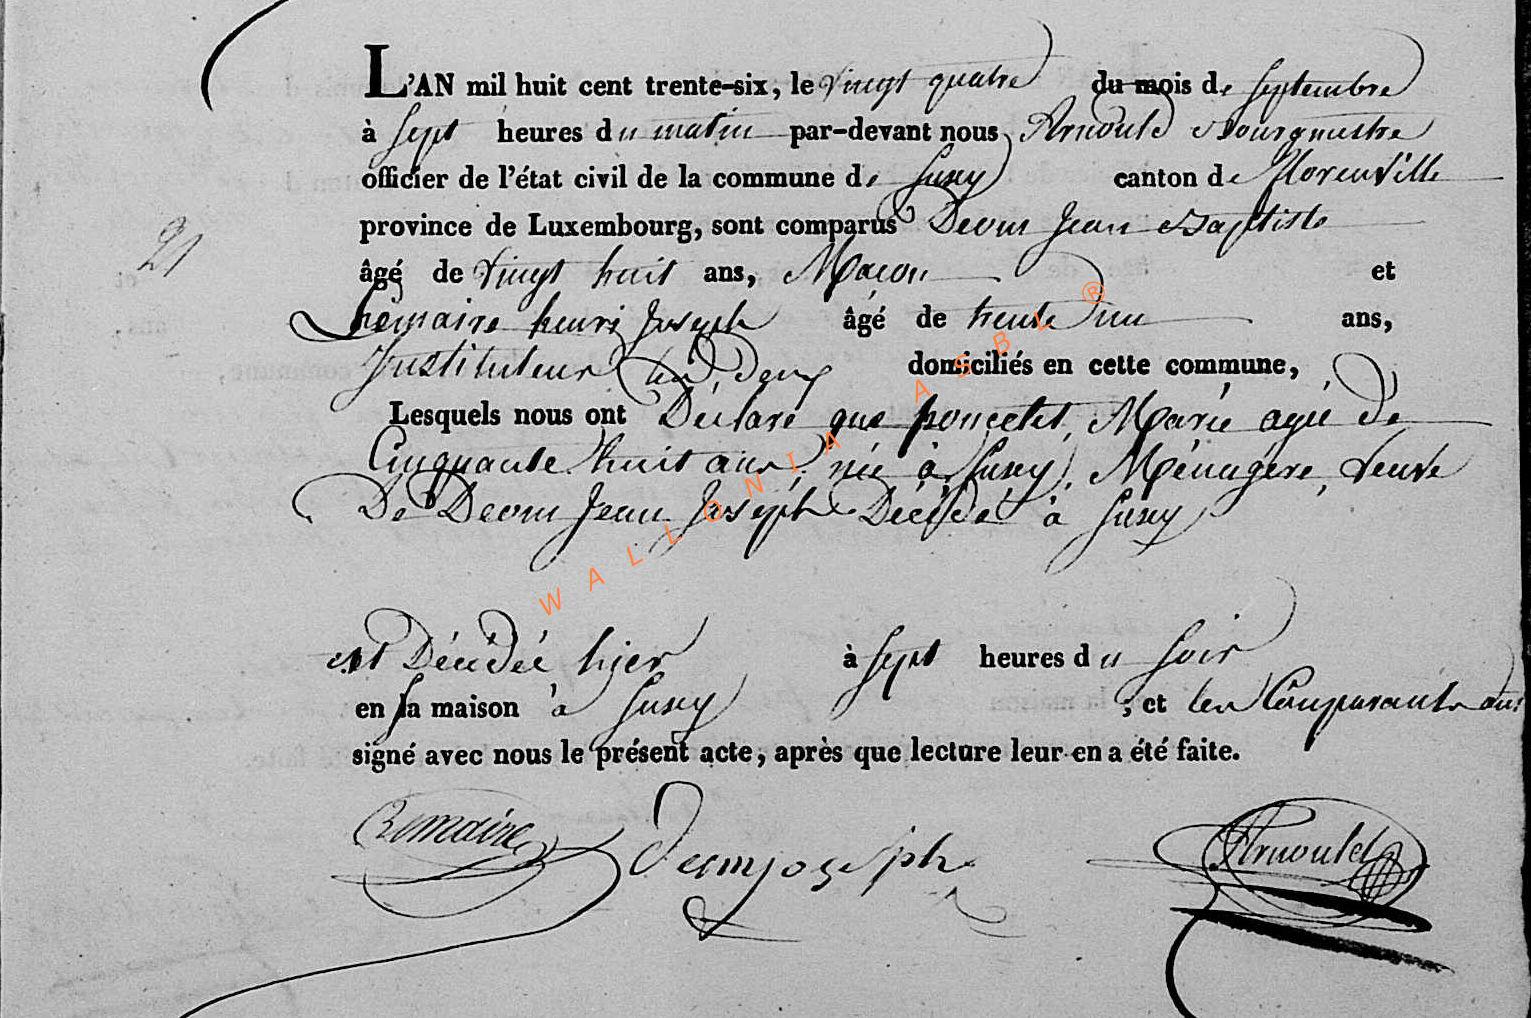 L'AN mil huit cent trente-six, le vingt quatre du mois de Septembre
à Sept heures du matin par-devant nous Arnould Bourgmestre
officier de l'état civil de la commune de Suxy canton de Florenville
province de Luxembourg, sont comparus Deom Jean Baptiste
21
âgé de vingt huit ans, Macon et
Lemaire henri Joseph âgé de trente un ans,
Instituteur les deux domiciliés en cette commune,
Lesquels nous ont Déclaré que poncelet, Marie agée de
Cinquante huit ans, née à Suxy, Ménagère, veuve
De Deom Jean Joseph Décédé à Suxy
est Décédée hier à Sept heures du Soir
en sa maison à Suxy ; et les Comparants ont
signé avec nous le présent acte, après que lecture leur en a été faite.
Lemaire Arnould
WALLONIA ASBL ®